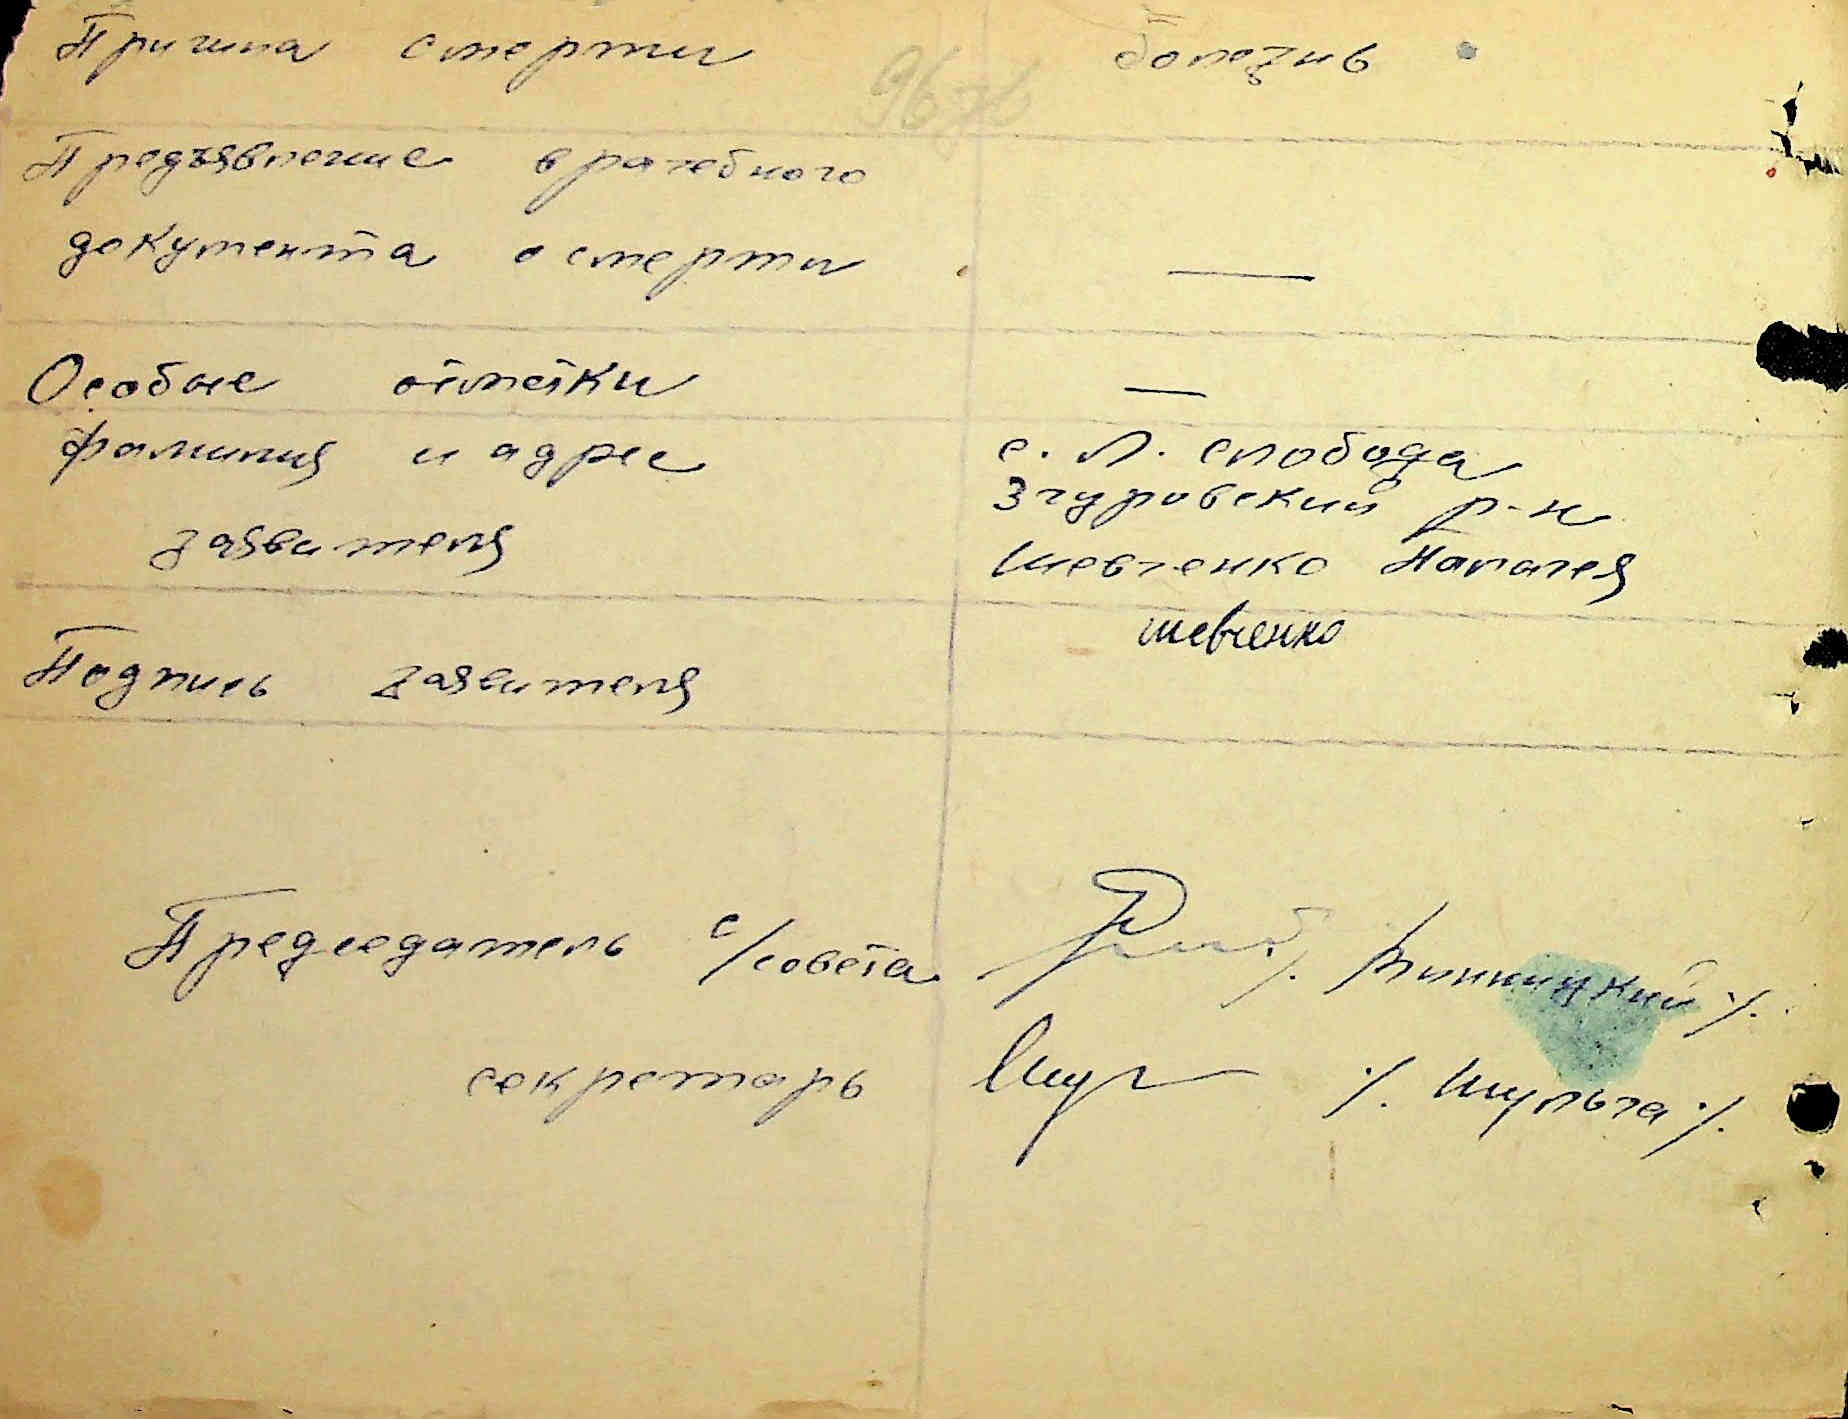 Причина смерти болезнь
Предъявление врачебного
документа о смерти —
Особые отметки —
фамилия и адрес с. Л. слобода
Згуровский р-н
заявителя Шевченко Наталея
шевченко
Подпись заявителя
Председатель с/совета /. Винницкий /.
секретарь Шул /. Шульга /.